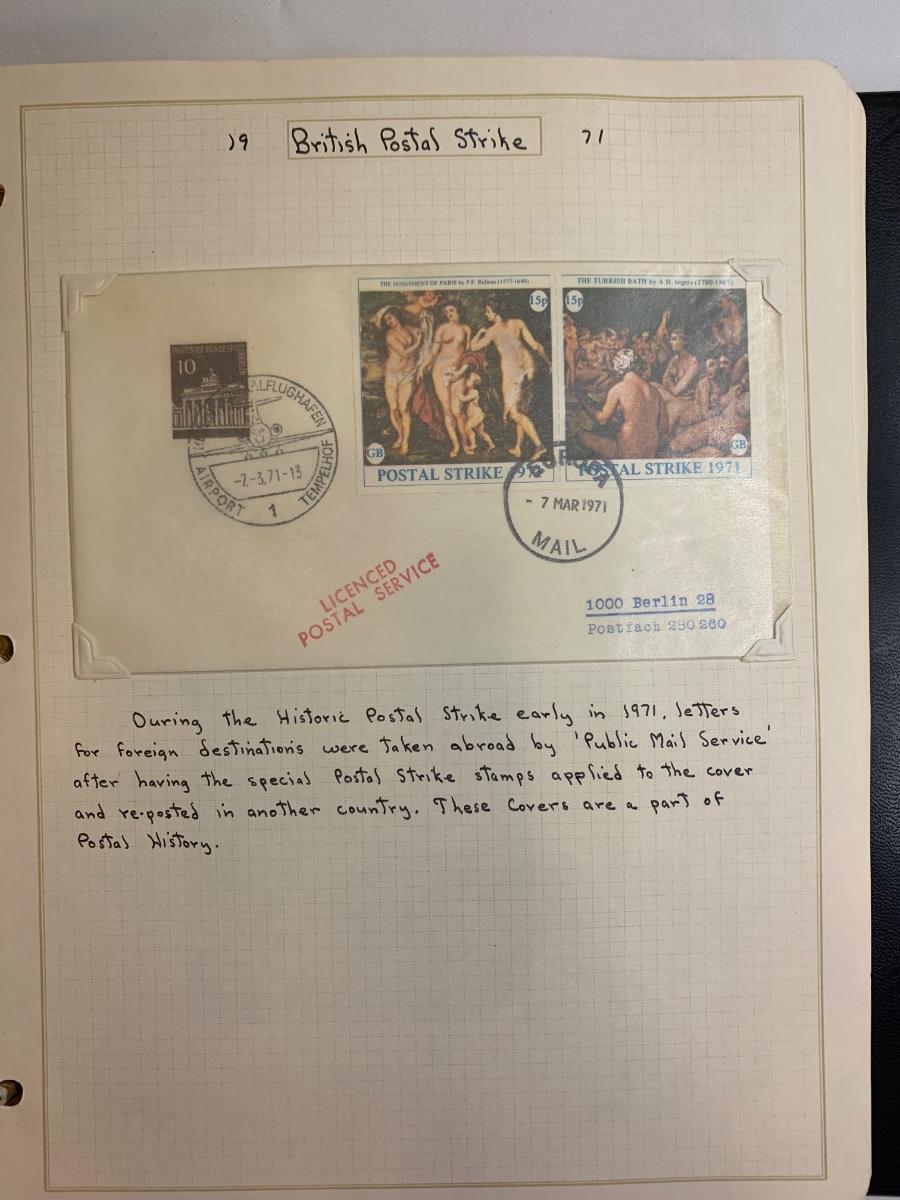 19 British Postal Strike 71
THE JUDGEMENT OF PARIS by P.P. Rubens (1577-1640)
15p
GB
POSTAL STRIKE 1971
THE TURKISH BATH by A.D. Ingres (1780-1867)
15p
GB
POSTAL STRIKE 1971
DEUTSCHE BUNDESPOST
10
ALFLUGHAFEN
AIRPORT 1 TEMPELHOF
-7.-3.71-13
EUROPA
- 7 MAR 1971
MAIL
LICENCED
POSTAL SERVICE
1000 Berlin 28
Postfach 280 260
During the Historic Postal Strike early in 1971, letters
for foreign destinations were taken abroad by 'Public Mail Service'
after having the special Postal Strike stamps applied to the cover
and re-posted in another country. These Covers are a part of
Postal History.